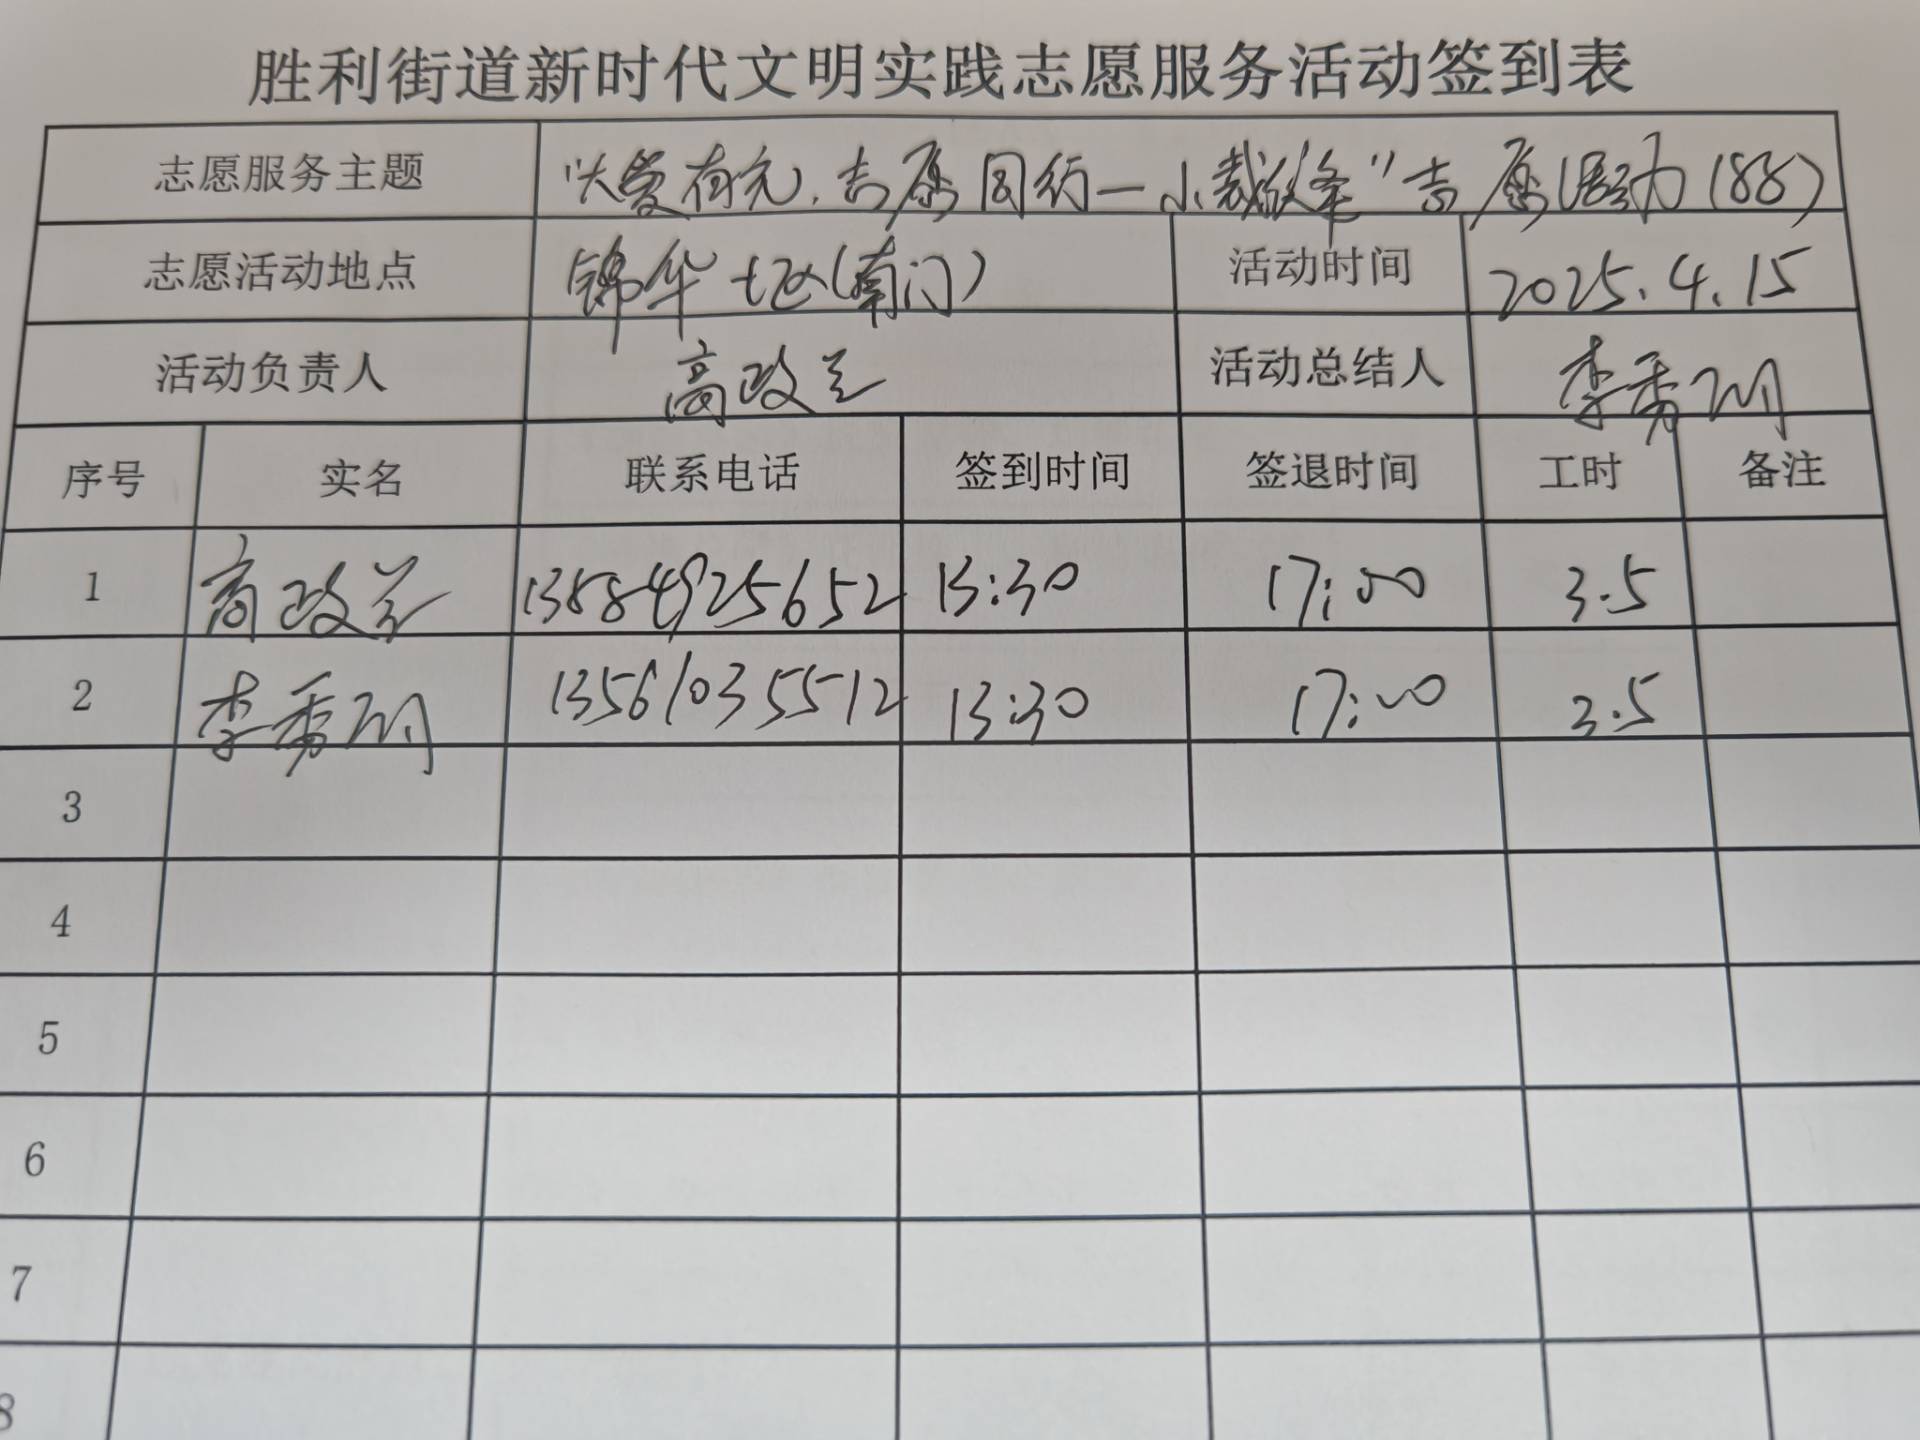 胜利街道新时代文明实践志愿服务活动签到表
志愿服务主题 "大爱有光,志愿同行—小裁缝"志愿活动(188)
志愿活动地点 锦华七区(南门) 活动时间 2025.4.15
活动负责人 高政 活动总结人 李秀
序号 实名 联系电话 签到时间 签退时间 工时 备注
1 高政 13884925652 13:30 17:00 3.5
2 李秀 13561035512 13:30 17:00 3.5
3
4
5
6
7
8